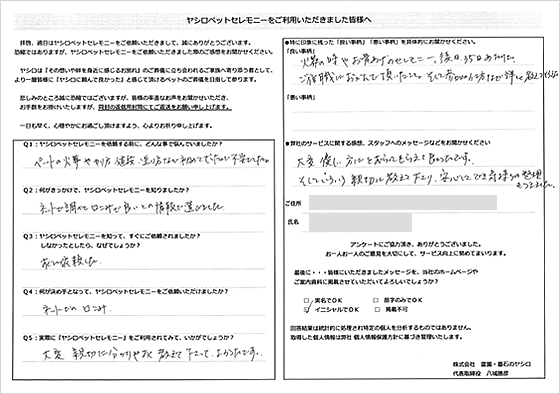 ヤシロペットセレモニーをご利用いただきました皆様へ
拝啓、過日はヤシロペットセレモニーをご依頼いただきまして、誠にありがとうございます。
恐縮ではありますが、ヤシロペットセレモニーをご依頼いただきました際のご感想をお聞かせください。
ヤシロは「その想いや絆を身近に感じるお別れ」のご葬儀に立ち合わせてもらえるご家族へ寄り添う者として、
より一層皆様に「ヤシロに頼んで良かった」と感じて頂けるペットのご葬儀を目指して参ります。
悲しみのところ誠に恐縮ではございますが、皆様の率直なお声をお聞かせいただき、
お手数をお掛けいたしますが、同封の返信用封筒にてご返送をお願い申し上げます。
一日も早く、心穏やかにお過ごし頂けますよう、心よりお祈り申し上げます。
Q1:ヤシロペットセレモニーを依頼する前に、どんな事で悩んでいましたか?
ペットの火事ややり方 値段、送り方など 初めてだったので不安でした。
Q2:何がきっかけで、ヤシロペットセレモニーを知りましたか?
ネットで調べて口コミが良いとの情報で選びました。
Q3:ヤシロペットセレモニーを知って、すぐにご依頼されましたか?
しなかったとしたら、なぜでしょうか?
依頼した
Q4:何が決め手となって、ヤシロペットセレモニーをご依頼いただけましたか?
ネットでの口コミ
Q5:実際に『ヤシロペットセレモニー』をご利用されてみて、いかがでしょうか?
大変 親切に分かりやすく 教えて下さって、よかったです。
●特に印象に残った「良い事柄」「悪い事柄」を具体的にお聞かせください。
「良い事柄」
「悪い事柄」
●弊社のサービスに関する感想、スタッフへのメッセージなどお聞かせください
大変 優しい方に
親切に教えて下さり、安心して
ご住所
氏名
アンケートにご協力頂き、ありがとうございました。
お一人お一人のご意見を大切にして、サービス向上に努めてまいります。
最後に・・・皆様にいただきましたメッセージを、当社のホームページや
ご案内資料に掲載させていただいてよろしいでしょうか?
□ 実名でOK □ 苗字のみでOK
☑ イニシャルでOK □ 掲載不可
回答結果は統計的に処理され特定の個人を分析するものではありません。
取得した個人情報は弊社 個人情報保護方針に基づき管理いたします。
株式会社 霊園・墓石のヤシロ
代表取締役 八城勝彦